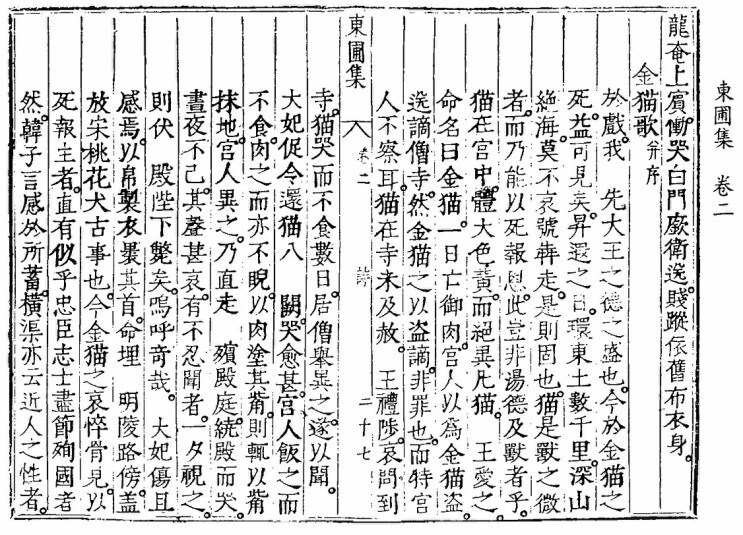 東圃集 卷二
龍奄上賓慟哭白門廞衛迻賤蹤依舊布衣身。
金猫歌 并序
於戲我 先大王之德之盛也。今於金猫之
死。益可見矣。昇遐之日。環東土數千里。深山
絶海。莫不哀號犇走。是則固也。猫是獸之微
者。而乃能以死報恩。此豈非湯德及獸者乎。
猫在宮中。體大色黃。而絶異凡猫。 王愛之。
命名曰金猫。一日亡御肉。宮人以爲金猫盜。
迻謫僧寺。然金猫之以盜謫。非罪也。而特宮
人不察耳。猫在寺未及赦。 王禮陟。哀問到
東圃集 卷二 詩 二十七
寺。猫哭而不食數日。居僧舉異之。遂以聞。
大妃促令還猫入 闕。哭愈甚。宮人飯之而
不食。肉之而亦不睨。以肉塗其觜。則輒以觜
抹地。宮人異之。乃直走 殯殿庭。統殿而哭。
晝夜不已。其聲甚哀。有不忍聞者。一夕視之。
則伏 殿陛下斃矣。嗚呼奇哉。 大妃傷且
感焉。以帛製衣褁其首。命埋 明陵路傍。盖
放宋桃花犬古事也。今金猫之哀悴骨見。以
死報主者。直有似乎忠臣志士盡節殉國者
然。韓子言感於所蓄。橫渠亦云近人之性者。